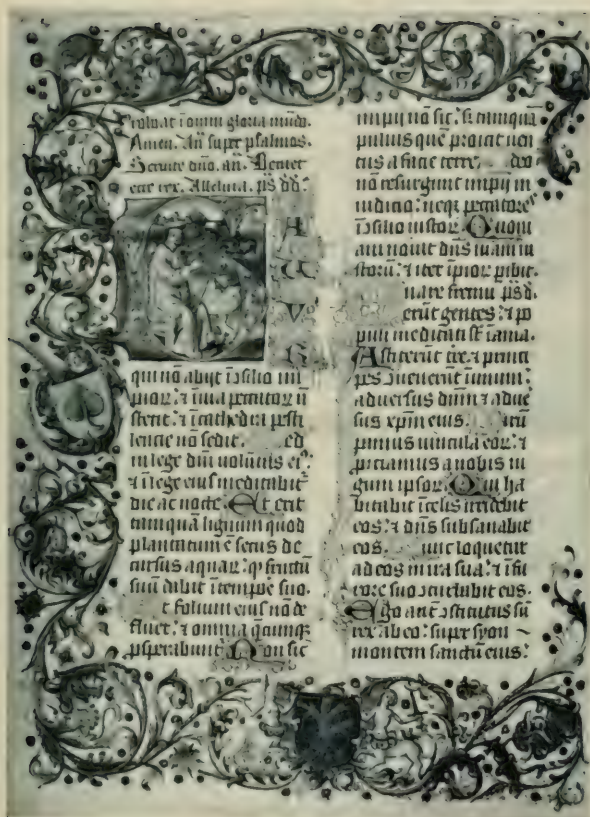 omni gloria mūdo.
Amen. Añ super psalmos.
Seruite dño. añ. Venite
rex. Alleluia. ps̄ dd̄.
A
U
V
G
qui nō abijt ī ꝯsilio im
pioꝝ: ⁊ ī uia peccatoꝝ ñ
stetit: ⁊ ī cathedra pesti
lencie nō sedit. ed
in lege dñi uolūtas eiꝰ:
⁊ ī lege eius meditabit̄
die ac nocte. Et erit
tamquā lignum quod
plantatum ē secus de
cursus aquaꝝ: qꝫ fructū
suū dabit ī tempore suo.
t folium eius nō de
fluet: ⁊ omnia q̄cunqꝫ
ꝓsperabunt̄. Non sic
impij nō sic: sꝫ tamquā
puluis quē proicit uen
tus a facie terre. deo
nō resurgunt impij in
iudicio: neqꝫ peccatores
ī ꝯsilio iustoꝝ. Quoni
am nouit dñs uiam iu
storū: ⁊ iter īpioꝝ ꝑibit.
uare fremu ps̄ d.
erūt gentes: ⁊ po
puli meditati sūt inania.
Astiterūt terre ⁊ princi
pes ꝯuenerūt in unum:
aduersus dñm ⁊ aduer
sus xp̄m eius. irū
pamus uincula eoꝝ: ⁊
proiciamus a nobis iu
gum ipsoꝝ. Qui ha
bitabit ī celis irridebit
eos: ⁊ dñs subsanabit
eos. unc loquetur
ad eos in ira sua: ⁊ ī fu
rore suo ꝯturbabit eos.
Ego autē ꝯstitutus sū
rex ab eo: super syon
montem sanctū eius: